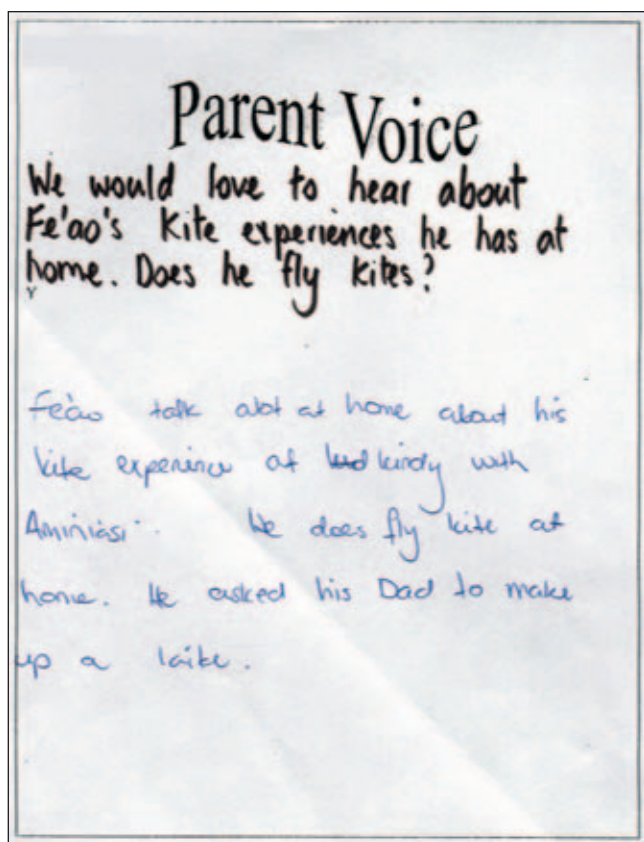 Parent Voice
We would love to hear about
Fe'ao's Kite experiences he has at
home. Does he fly kites?
Fe'ao talk alot at home about his
kite experince at kindy with
Aminiasi. He does fly kite at
home. He asked his Dad to make
up a kite.